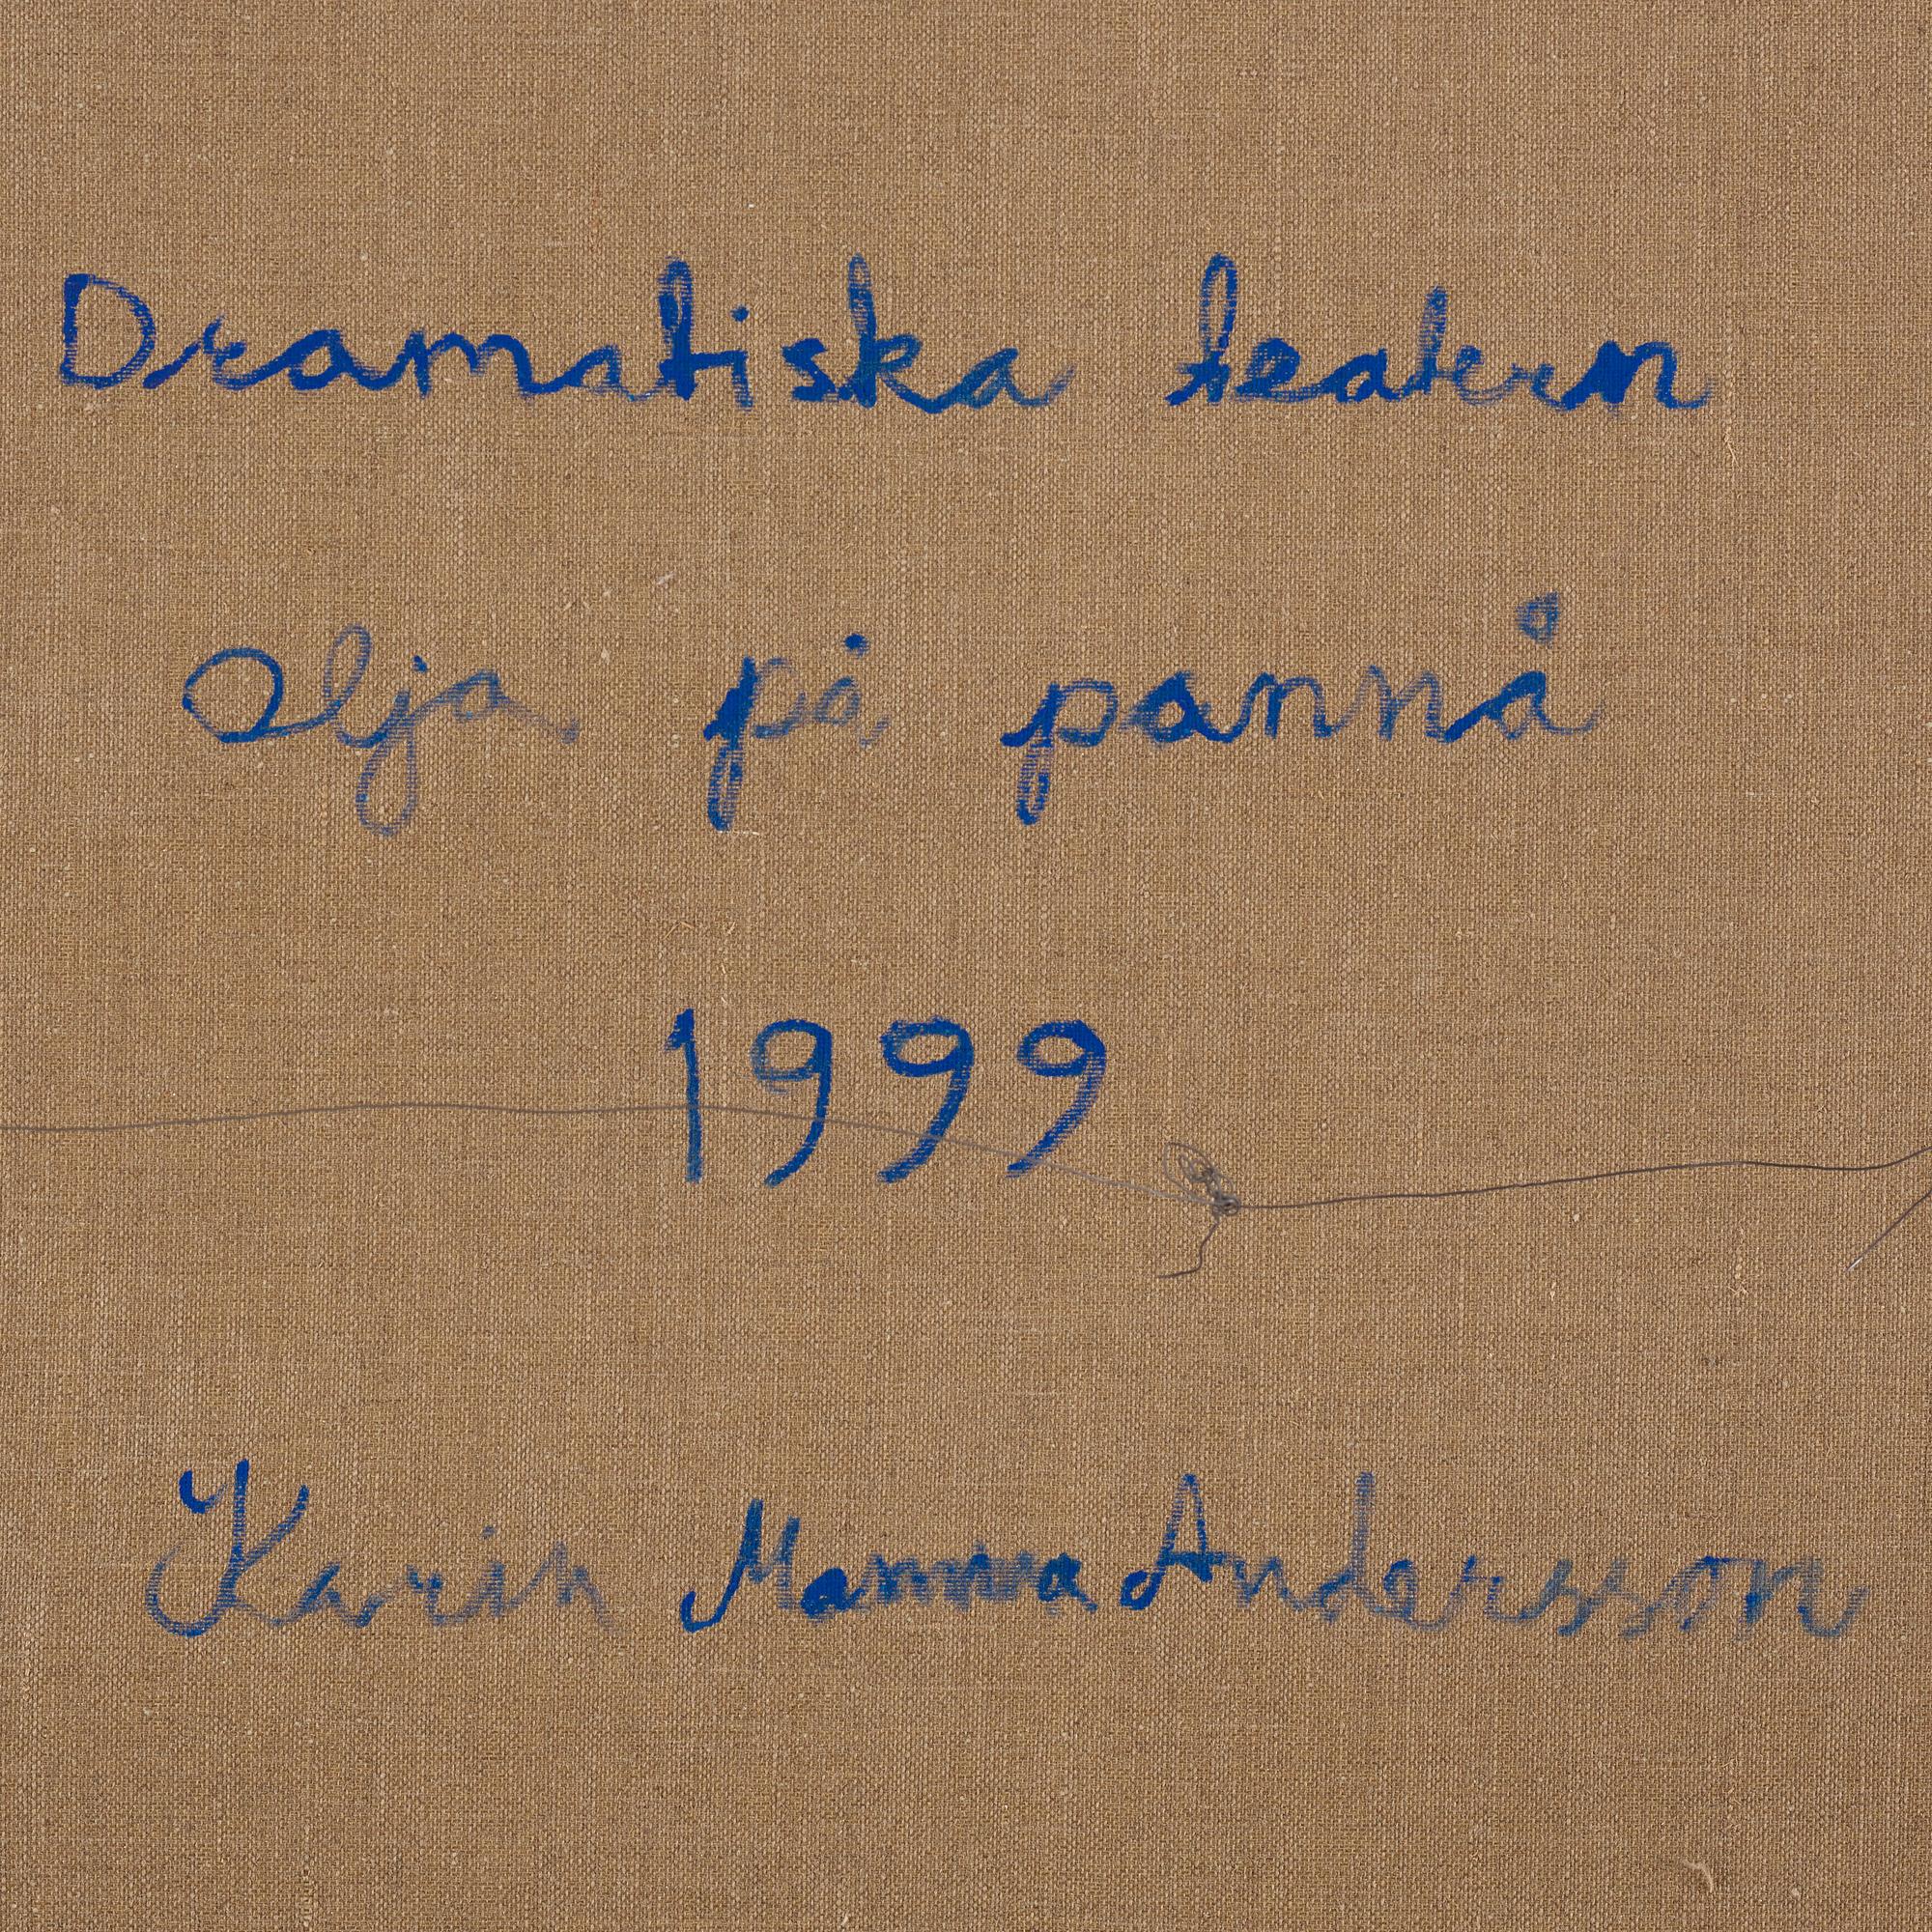 Dramatiska teatern
Olja på pannå
1999
Karin Mamma Andersson